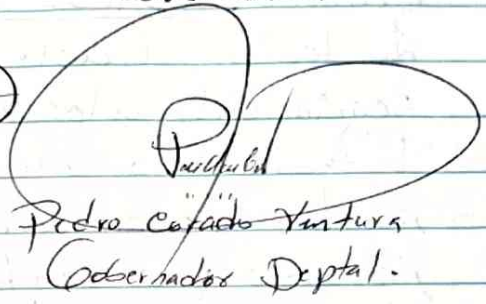 Pedro Corado Ventura
Gobernador Deptal.